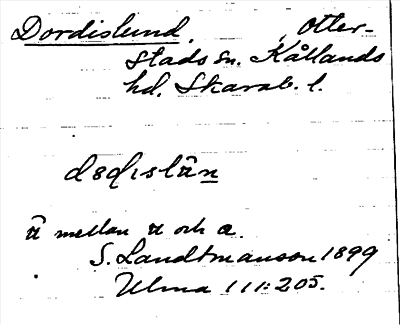 Dordislund. , Otter-
stads sn. Kållands
hd. Skarab. l.
mellan u och a.
S. Landtmanson 1899
Ulma 111:205.